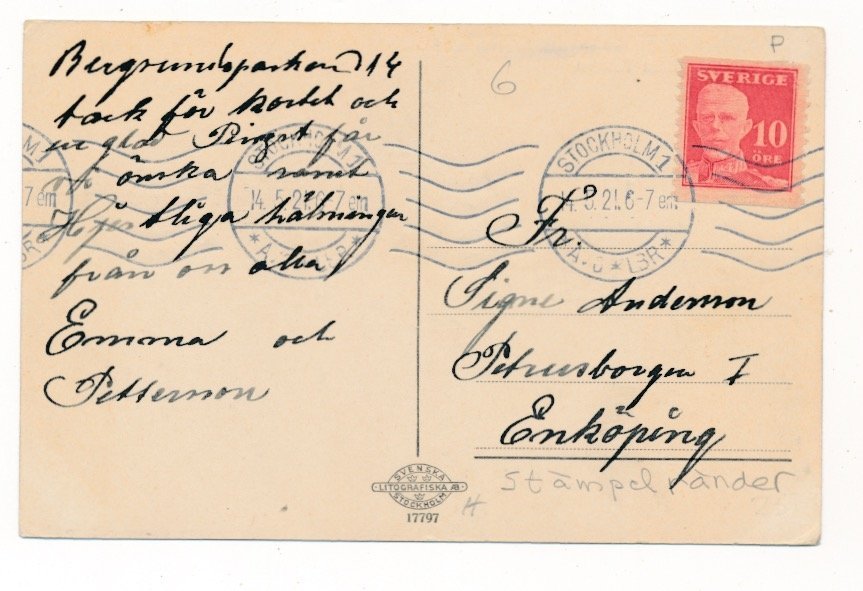 Bergsundsparken 14
tack för kortet och
en glad Pingst får
vi önska samt
Hjertliga hälsningar
från oss alla
Emma och
Petterson
6
P
SVERIGE
10
ÖRE
STOCKHOLM 1
14.5.21.6-7 em
* A.
BR *
STOCKHOLM 1
14.5.21.6-7 em
* LBR *
M 1
-7 em
BR *
Fr.
Signe Anderson
Petrusborgen I
Enköping
stämpel vänder
SVENSKA
LITOGRAFISKA AB
STOCKHOLM
17797